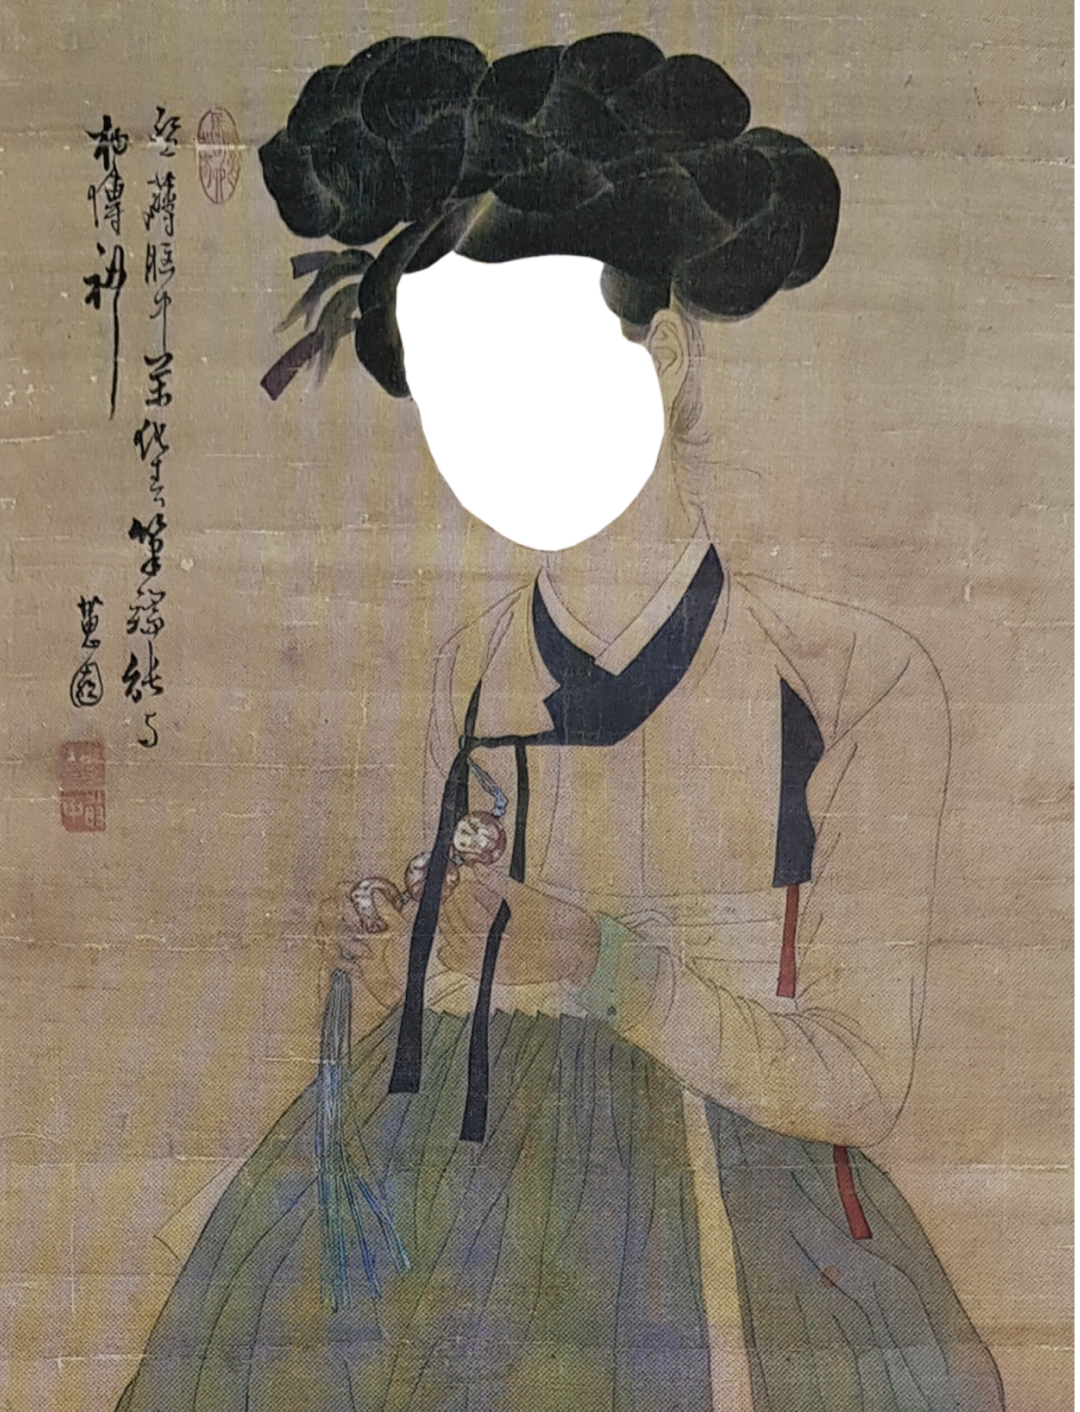 盤薄胸中萬化春筆端能与
物傳神
蕙園